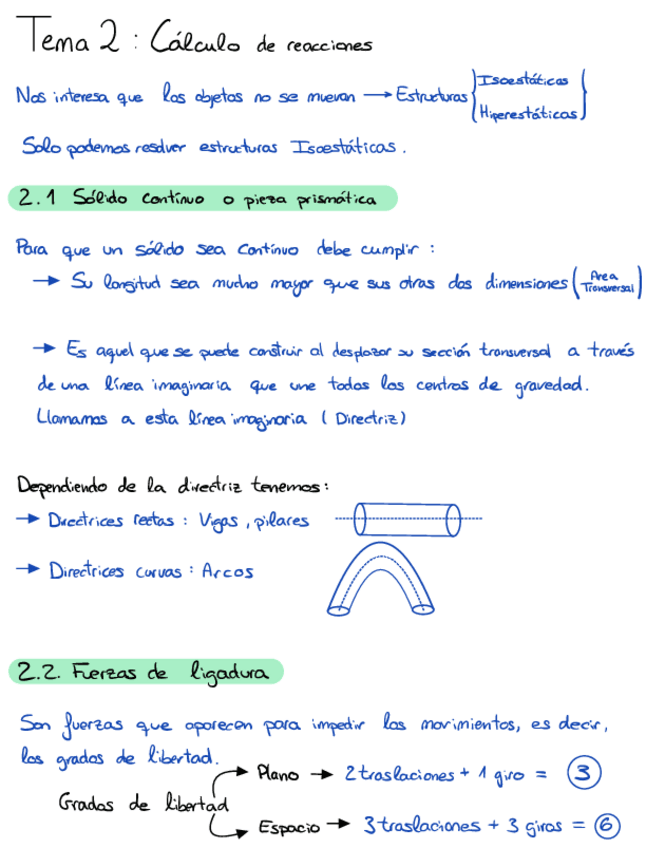 Tema 2: Cálculo de reacciones
Nos interesa que los objetos no se muevan → Estructuras
Isoestáticas
Hiperestáticas
Solo podemos resolver estructuras Isoestáticas.
2.1 Sólido Contínuo o pieza prismática
Para que un sólido sea Contínuo debe cumplir:
→ Su longitud sea mucho mayor que sus otras dos dimensiones (Area Transversal)
→ Es aquel que se puede construir al desplazar su sección transversal a través
de una línea imaginaria que une todos los centros de gravedad.
Llamamos a esta línea imaginaria (Directriz)
Dependiendo de la directriz tenemos:
→ Directrices rectas: Vigas, pilares
→ Directrices curvas: Arcos
2.2. Fuerzas de ligadura
Son fuerzas que aparecen para impedir los movimientos, es decir,
los grados de libertad.
Grados de libertad
→ Plano → 2 traslaciones + 1 giro = 3
→ Espacio → 3 traslaciones + 3 giros = 6